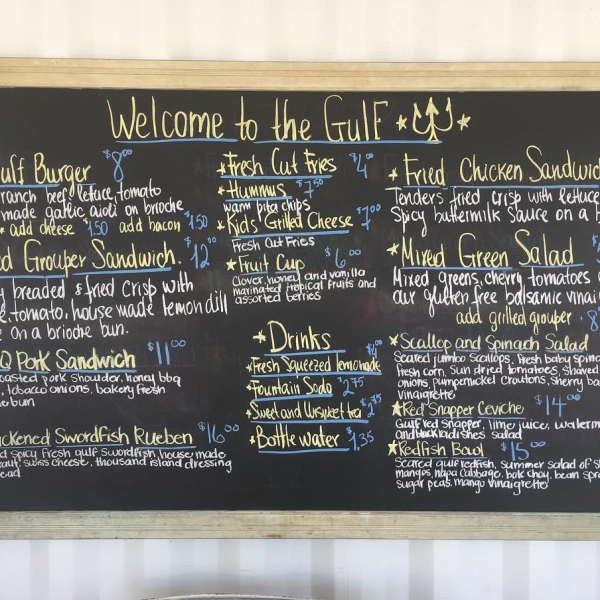 Welcome to the Gulf
Gulf Burger $8⁰⁰
ranch beef, lettuce, tomato
made garlic aioli on brioche
* add cheese $1.50 add bacon $1.50
Grouper Sandwich. $12⁰⁰
breaded & fried crisp with
tomato, house made lemon dill
on a brioche bun.
Pork Sandwich $11⁰⁰
pork shoulder, honey bbq
tobacco onions, bakery fresh
bun
Swordfish Rueben $16⁰⁰
spicy fresh gulf swordfish, house made
swiss cheese, thousand island dressing
Fresh Cut Fries $4⁰⁰
Hummus $7⁵⁰
warm pita chips
Kid's Grilled Cheese $7⁰⁰
Fresh Cut Fries
Fruit Cup $6⁰⁰
Clover honey and vanilla
marinated tropical fruits and
assorted berries
Drinks
Fresh Squeezed lemonade $4⁰⁰
Fountain Soda $2.75
Sweet and Unsweet tea $2.75
Bottle water $1.35
Fried Chicken Sandwich
Tenders fried crisp with lettuce
spicy buttermilk sauce on a
Mixed Green Salad
Mixed greens, cherry tomatoes
our gluten free balsamic
add grilled grouper $8
Scallop and Spinach Salad
Seared jumbo scallops, fresh baby
fresh corn, sun dried tomatoes, shaved
onions, pumpernickel croutons, sherry
vinaigrette
Red Snapper Ceviche $14⁰⁰
Gulf red snapper, lime juice,
and black radishes salad
Redfish Bowl $15⁰⁰
Seared gulf redfish, summer salad of
mangos, napa cabbage, bok choy, bean
sugar peas, mango vinaigrette